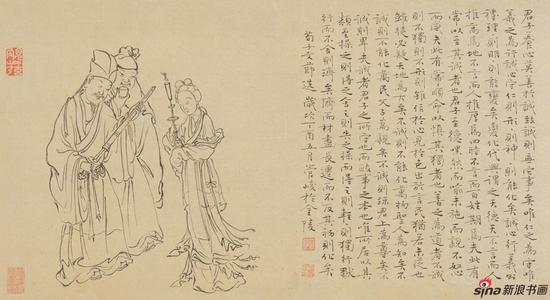 君子養心莫善於誠致誠則無它事矣唯仁之為守唯
義之為行誠心守仁則形則神則能化矣誠心行義則
理理則明則能變矣變化代興謂之天德天不言而人
推高焉地不言而人推厚焉四時不言而百姓期焉夫此有
常以至其誠者也君子至德嘿然而喻未施而親不怒
而威夫此有常順命以慎其獨者也善之為道者不誠
則不獨不獨則不形則雖作於心見於色出於言民猶若未從也
雖從必疑天地為大矣不誠則不能化萬物聖人為知矣不
誠則不能化萬民父子為親矣不誠則疏君上為尊矣不
誠則卑夫誠者君子之所守也而政事之本也唯所居以其
類至操之則得之舍之則失之操而得之則輕輕則獨行獸
行而不舍則濟矣濟而材盡長遷而不反其初則化矣
荀子文節選歲次丁酉五月管峻於金陵
sina新浪书画